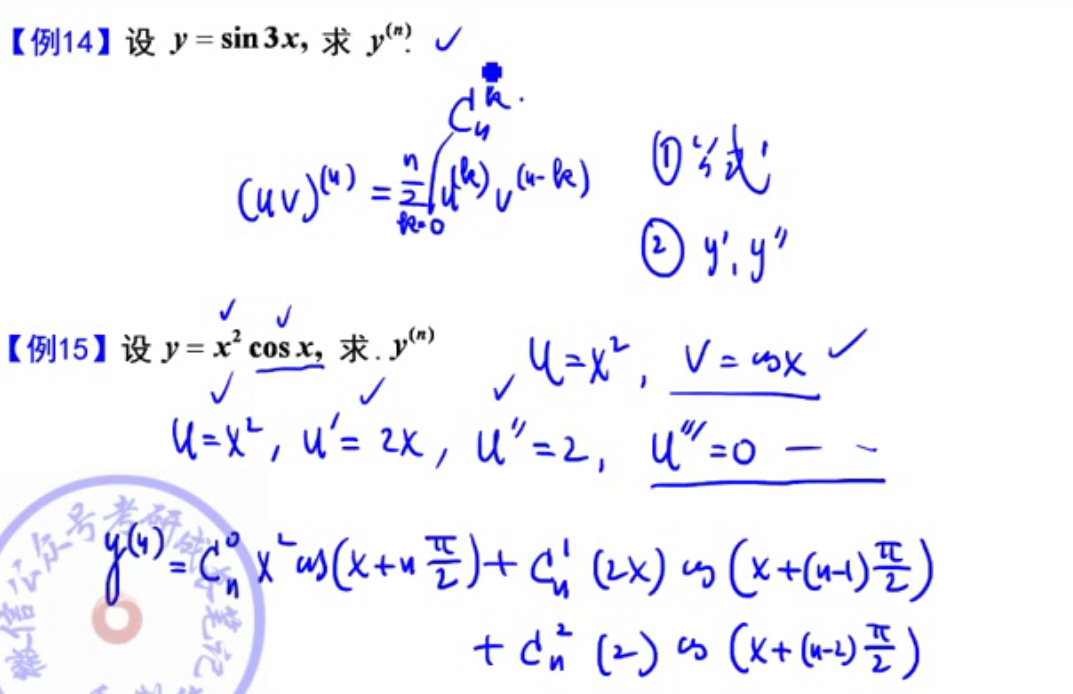 【例14】设 y = sin 3x, 求 y⁽ⁿ⁾. ✓
Cₙᵏ.
(uv)⁽ⁿ⁾ = Σₖ₌₀ⁿ u⁽ᵏ⁾ v⁽ⁿ⁻ᵏ⁾ ① 公式
② y', y''
【例15】设 y = x² cos x, 求. y⁽ⁿ⁾
u = x², v = cos x ✓
u = x², u' = 2x, u'' = 2, u''' = 0 — -
y⁽ⁿ⁾ = Cₙ⁰ x² cos(x + n π/2) + Cₙ¹ (2x) cos(x + (n-1) π/2)
+ Cₙ² (2) cos(x + (n-2) π/2)
微信公众号考研
笔记